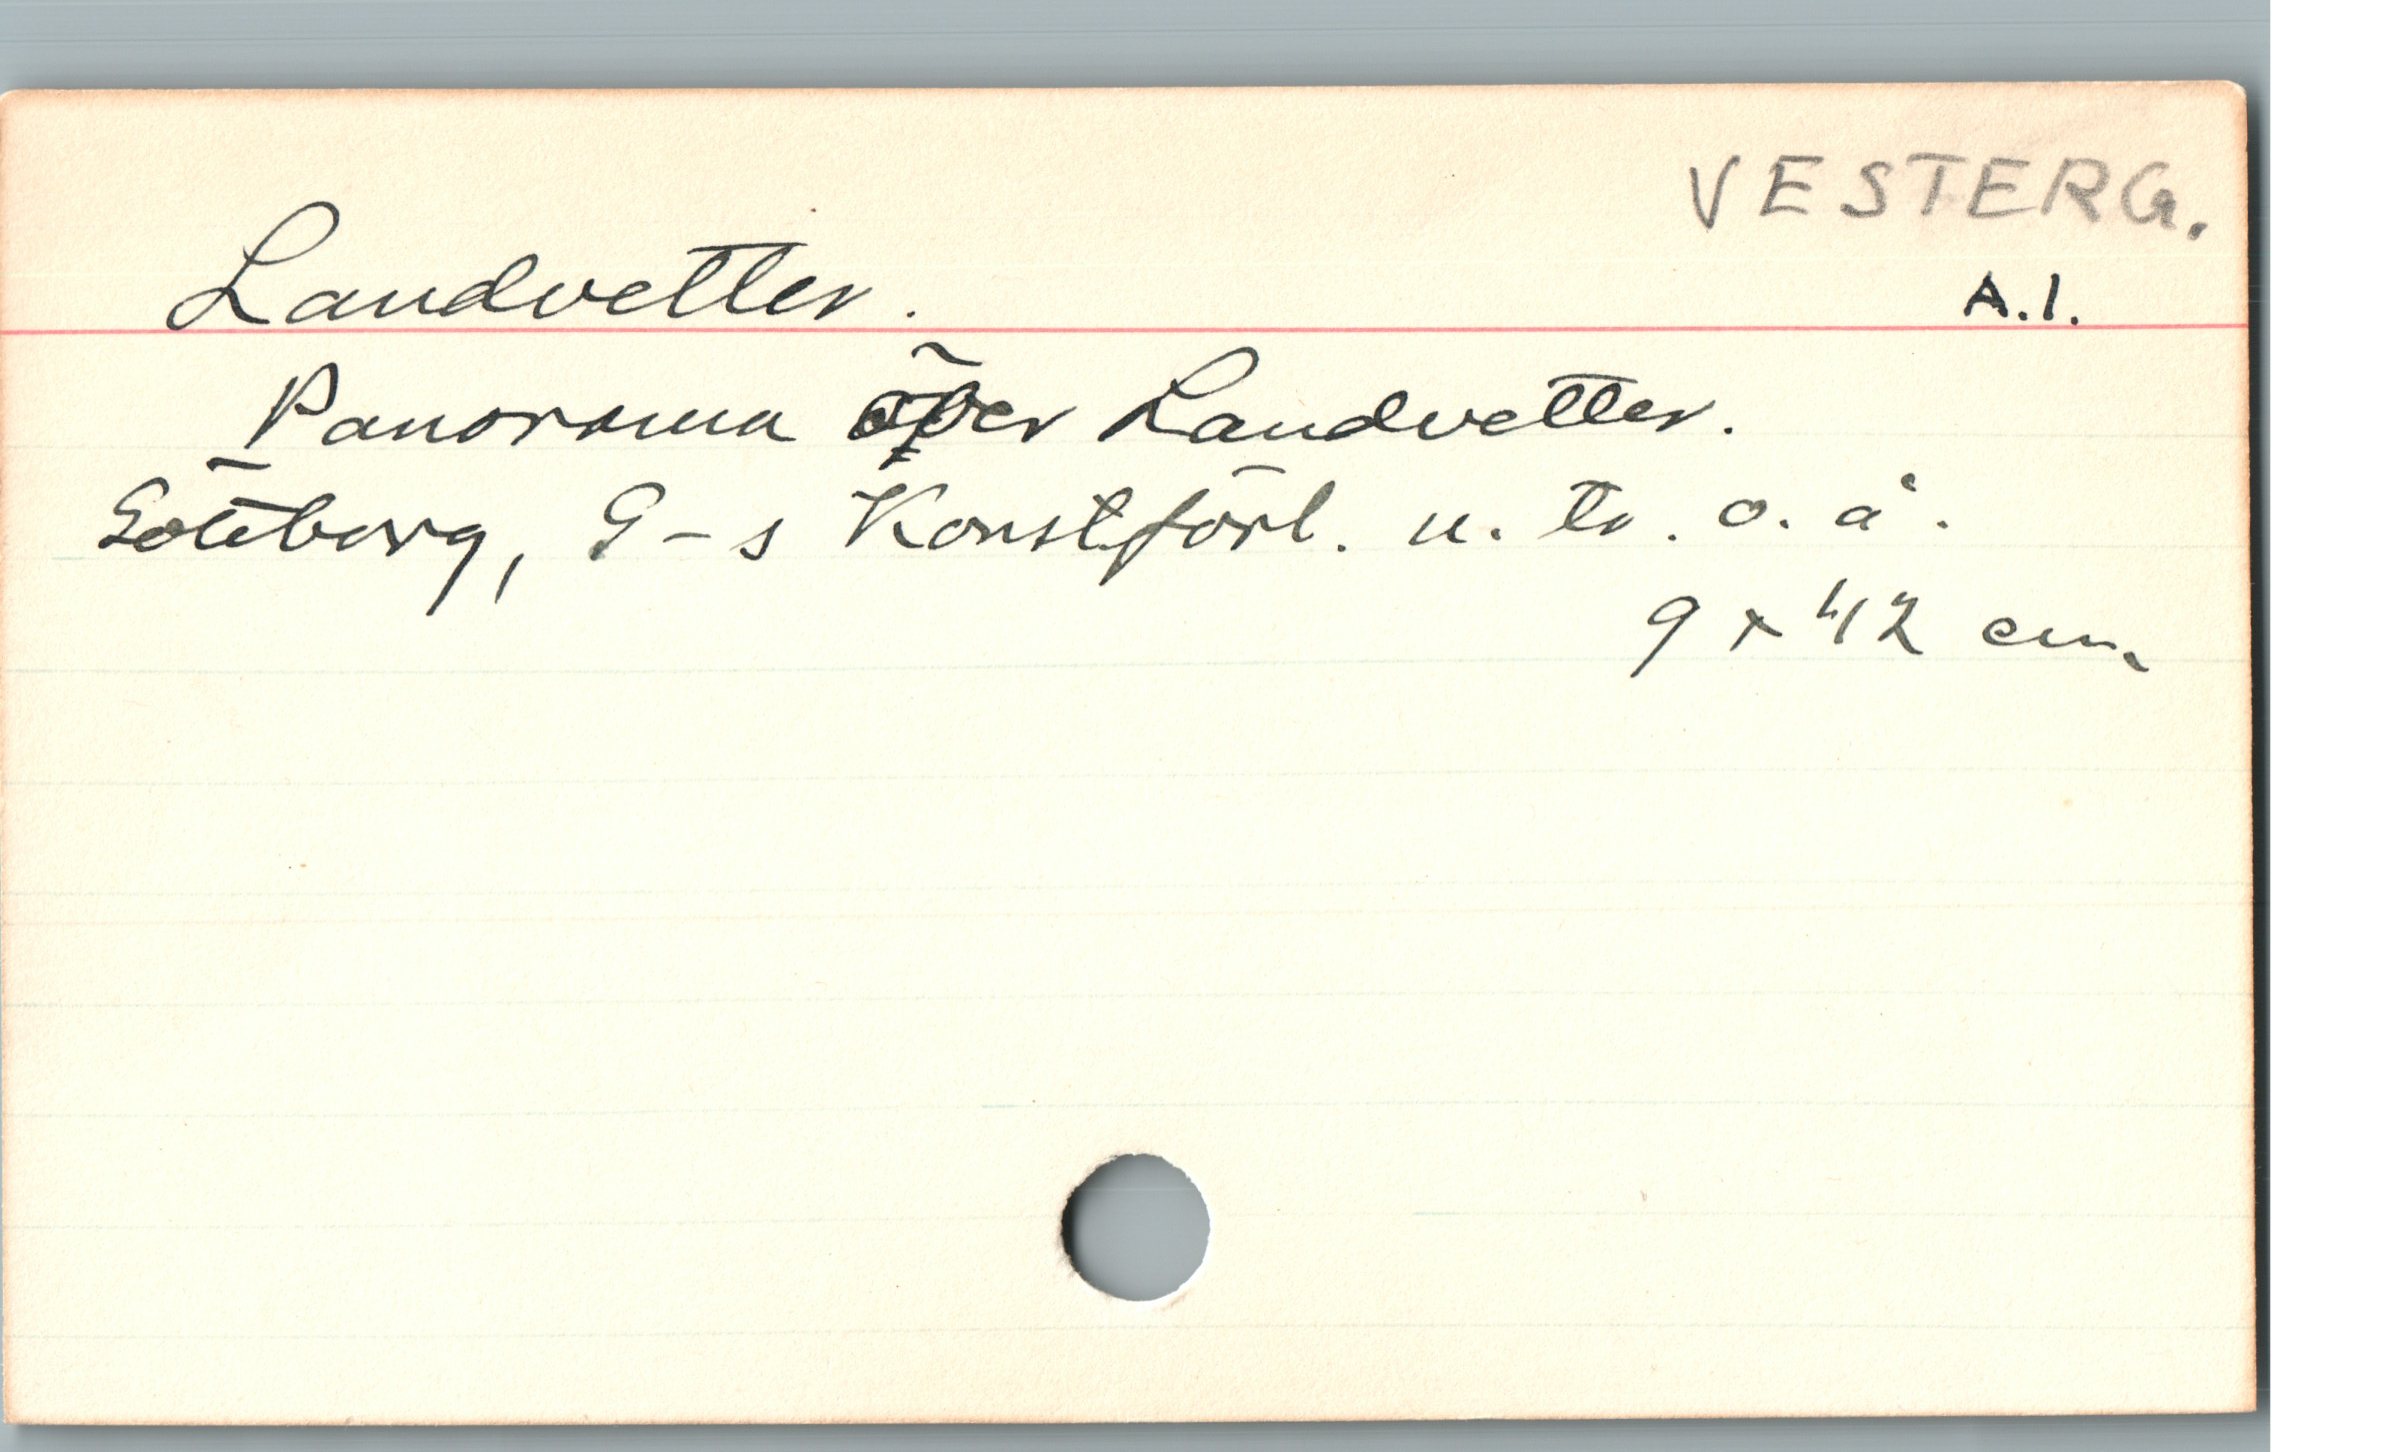 VESTERG.
Landvetter.
A.1.
Panorama över Landvetter.
Göteborg, G-s Konstförl. u. tr. o. å.
9 x 42 cm.